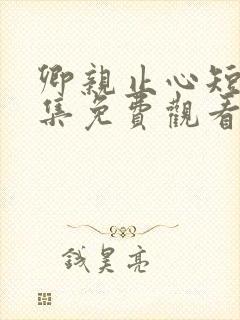 卿親止心短
集免費觀看
錢昊亮